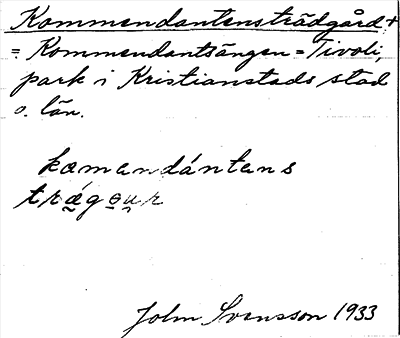 Kommendantensträdgård +
= Kommendantsängen = Tivoli,
park i Kristianstads stad
o. län.
kœmandántans
trǽgœu̯r
John Svensson 1933